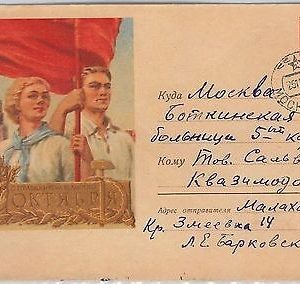 Куда Москва
Боткинская
больница 5ый ко
Кому Тов. Саль
Квазимодо
Адрес отправителя Малахов
Кр. Змеевка 14
Л.Е. Барковск
ОКТЯБРЯ